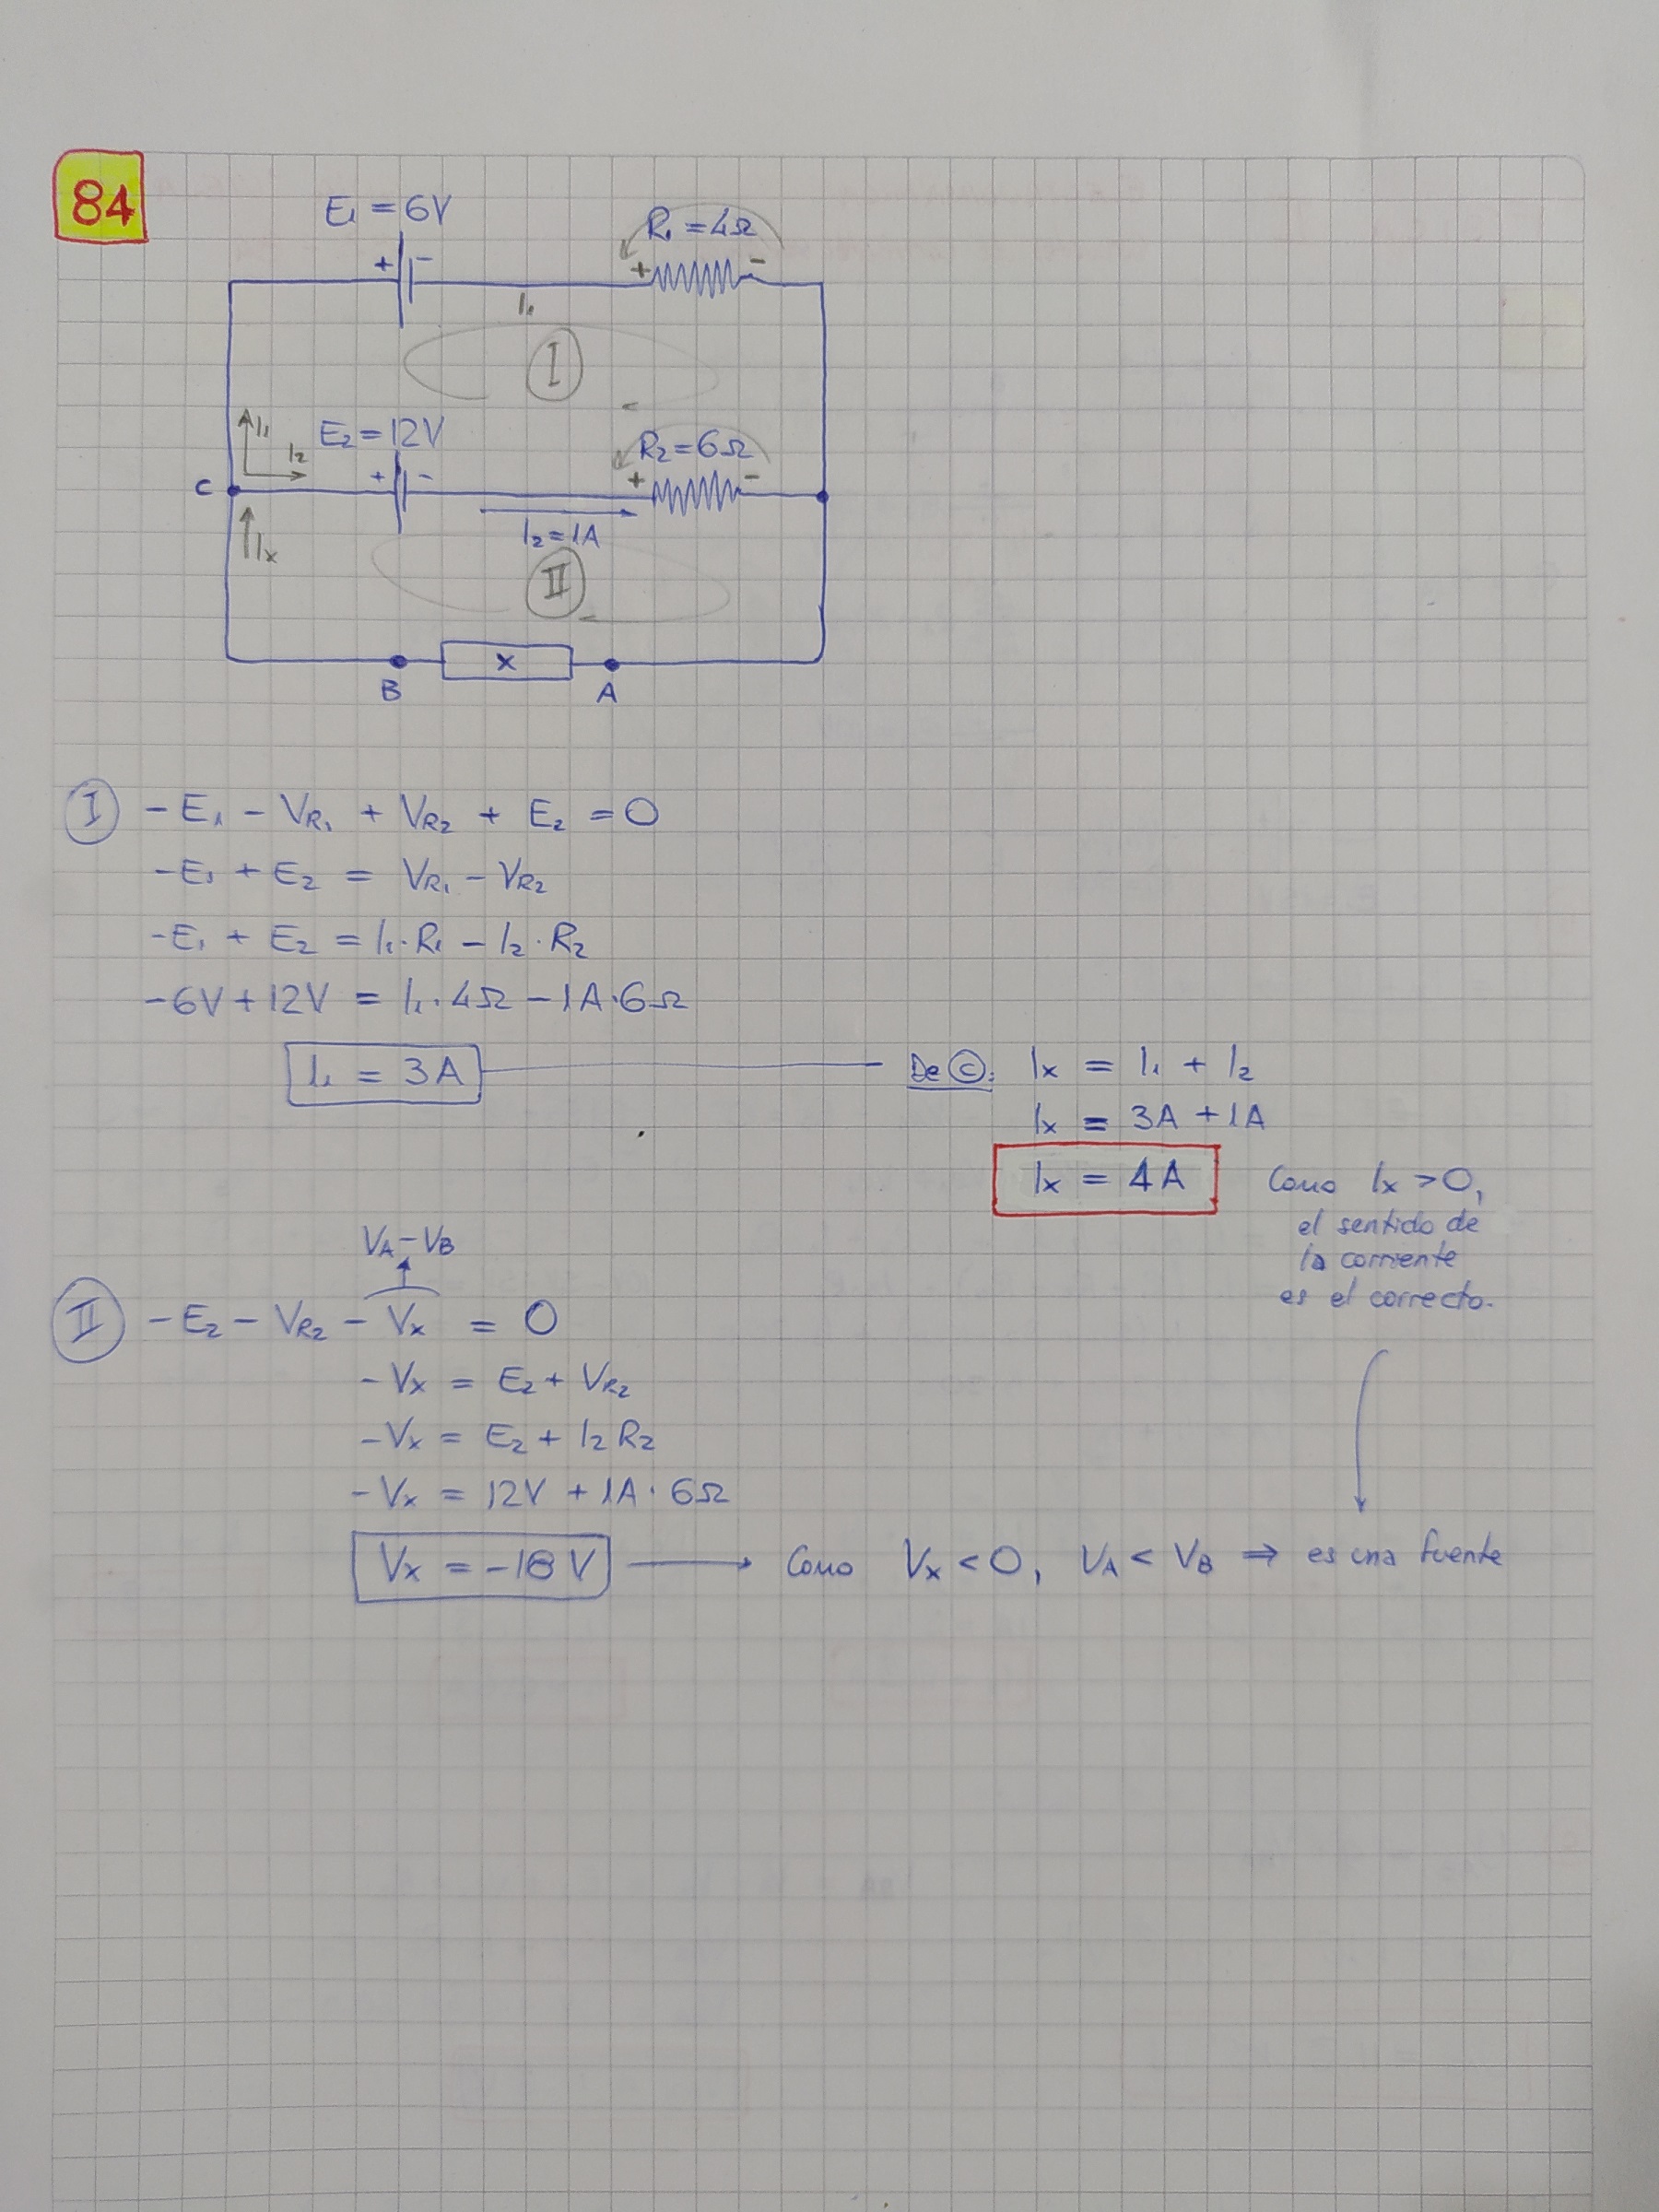 84
E₁ = 6V
R₁ = 4Ω
+ -
+ -
I₁
I
I₁
E₂ = 12V
I₂
R₂ = 6Ω
+ -
+ -
C
I₂ = 1A
Ix
II
x
B
A
I -E₁ - VR₁ + VR₂ + E₂ = 0
-E₁ + E₂ = VR₁ - VR₂
-E₁ + E₂ = I₁·R₁ - I₂·R₂
-6V + 12V = I₁·4Ω - 1A·6Ω
I₁ = 3A
De C: Ix = I₁ + I₂
Ix = 3A + 1A
Ix = 4A
Como Ix > 0,
el sentido de
la corriente
es el correcto.
VA - VB
II -E₂ - VR₂ - Vx = 0
-Vx = E₂ + VR₂
-Vx = E₂ + I₂ R₂
-Vx = 12V + 1A · 6Ω
Vx = -18V → Como Vx < 0, VA < VB ⇒ es una fuente